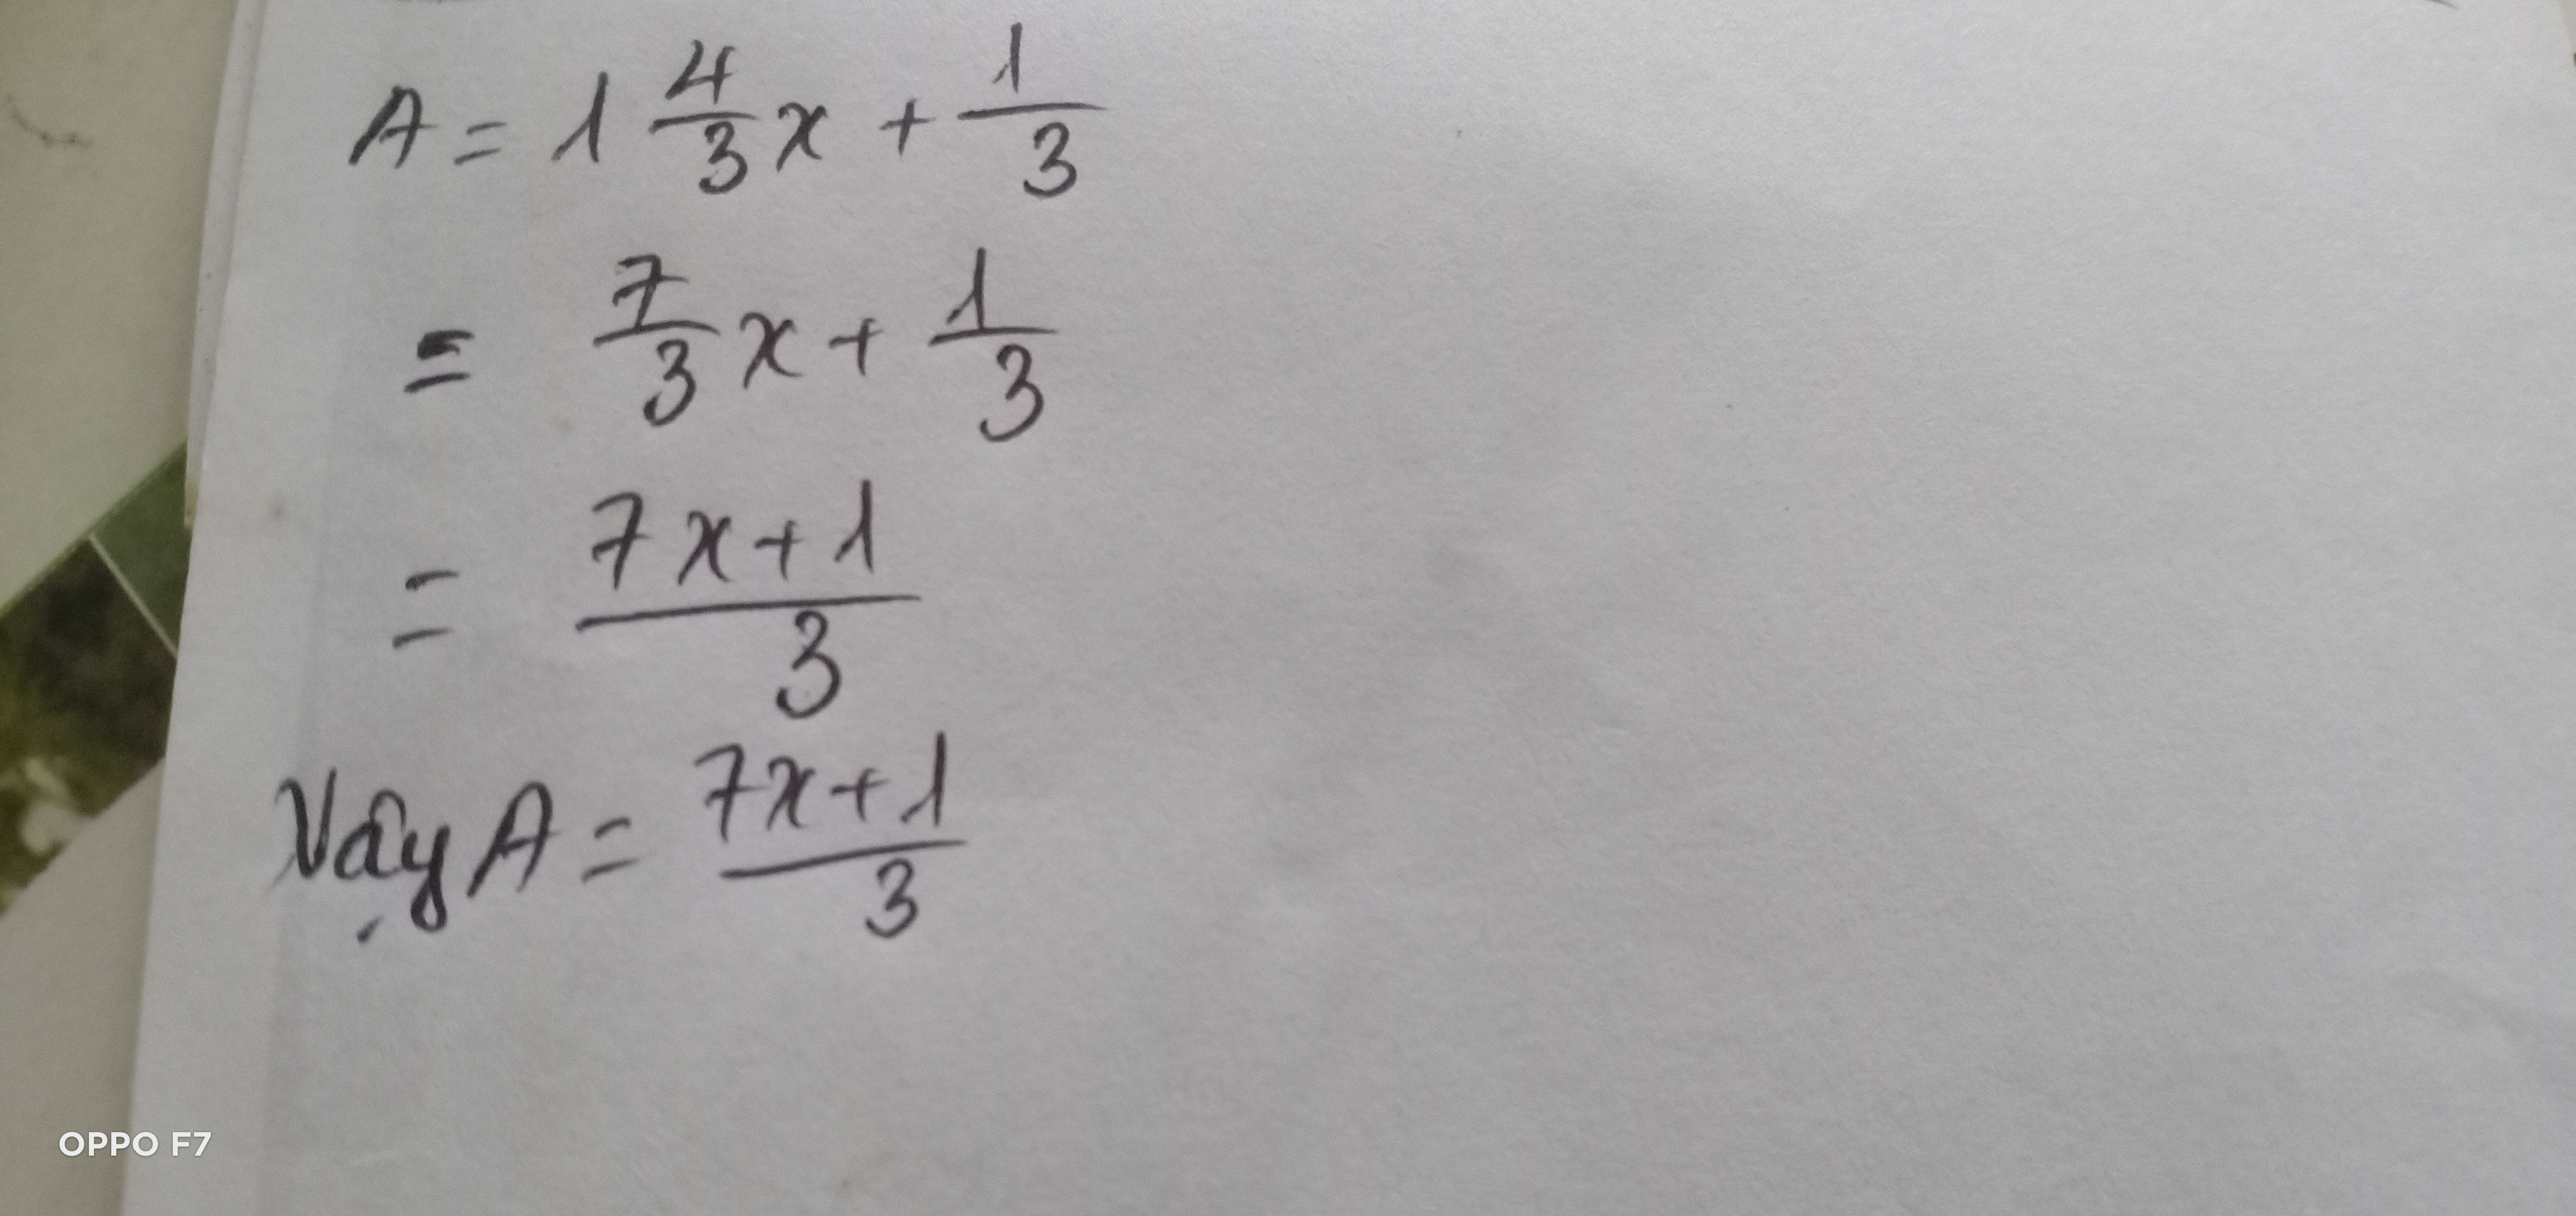 A = 1 4/3 x + 1/3
= 7/3 x + 1/3
= 7x+1/3
Vậy A = 7x+1/3
OPPO F7